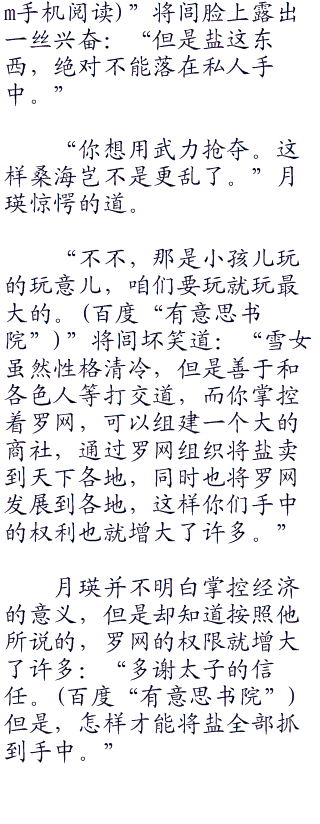 m手机阅读)”将闾脸上露出
一丝兴奋：“但是盐这东
西，绝对不能落在私人手
中。”
“你想用武力抢夺。这
样桑海岂不是更乱了。”月
瑛惊愕的道。
“不不，那是小孩儿玩
的玩意儿，咱们要玩就玩最
大的。(百度“有意思书
院”)”将闾坏笑道：“雪女
虽然性格清冷，但是善于和
各色人等打交道，而你掌控
着罗网，可以组建一个大的
商社，通过罗网组织将盐卖
到天下各地，同时也将罗网
发展到各地，这样你们手中
的权利也就增大了许多。”
月瑛并不明白掌控经济
的意义，但是却知道按照他
所说的，罗网的权限就增大
了许多：“多谢太子的信
任。(百度“有意思书院”)
但是，怎样才能将盐全部抓
到手中。”